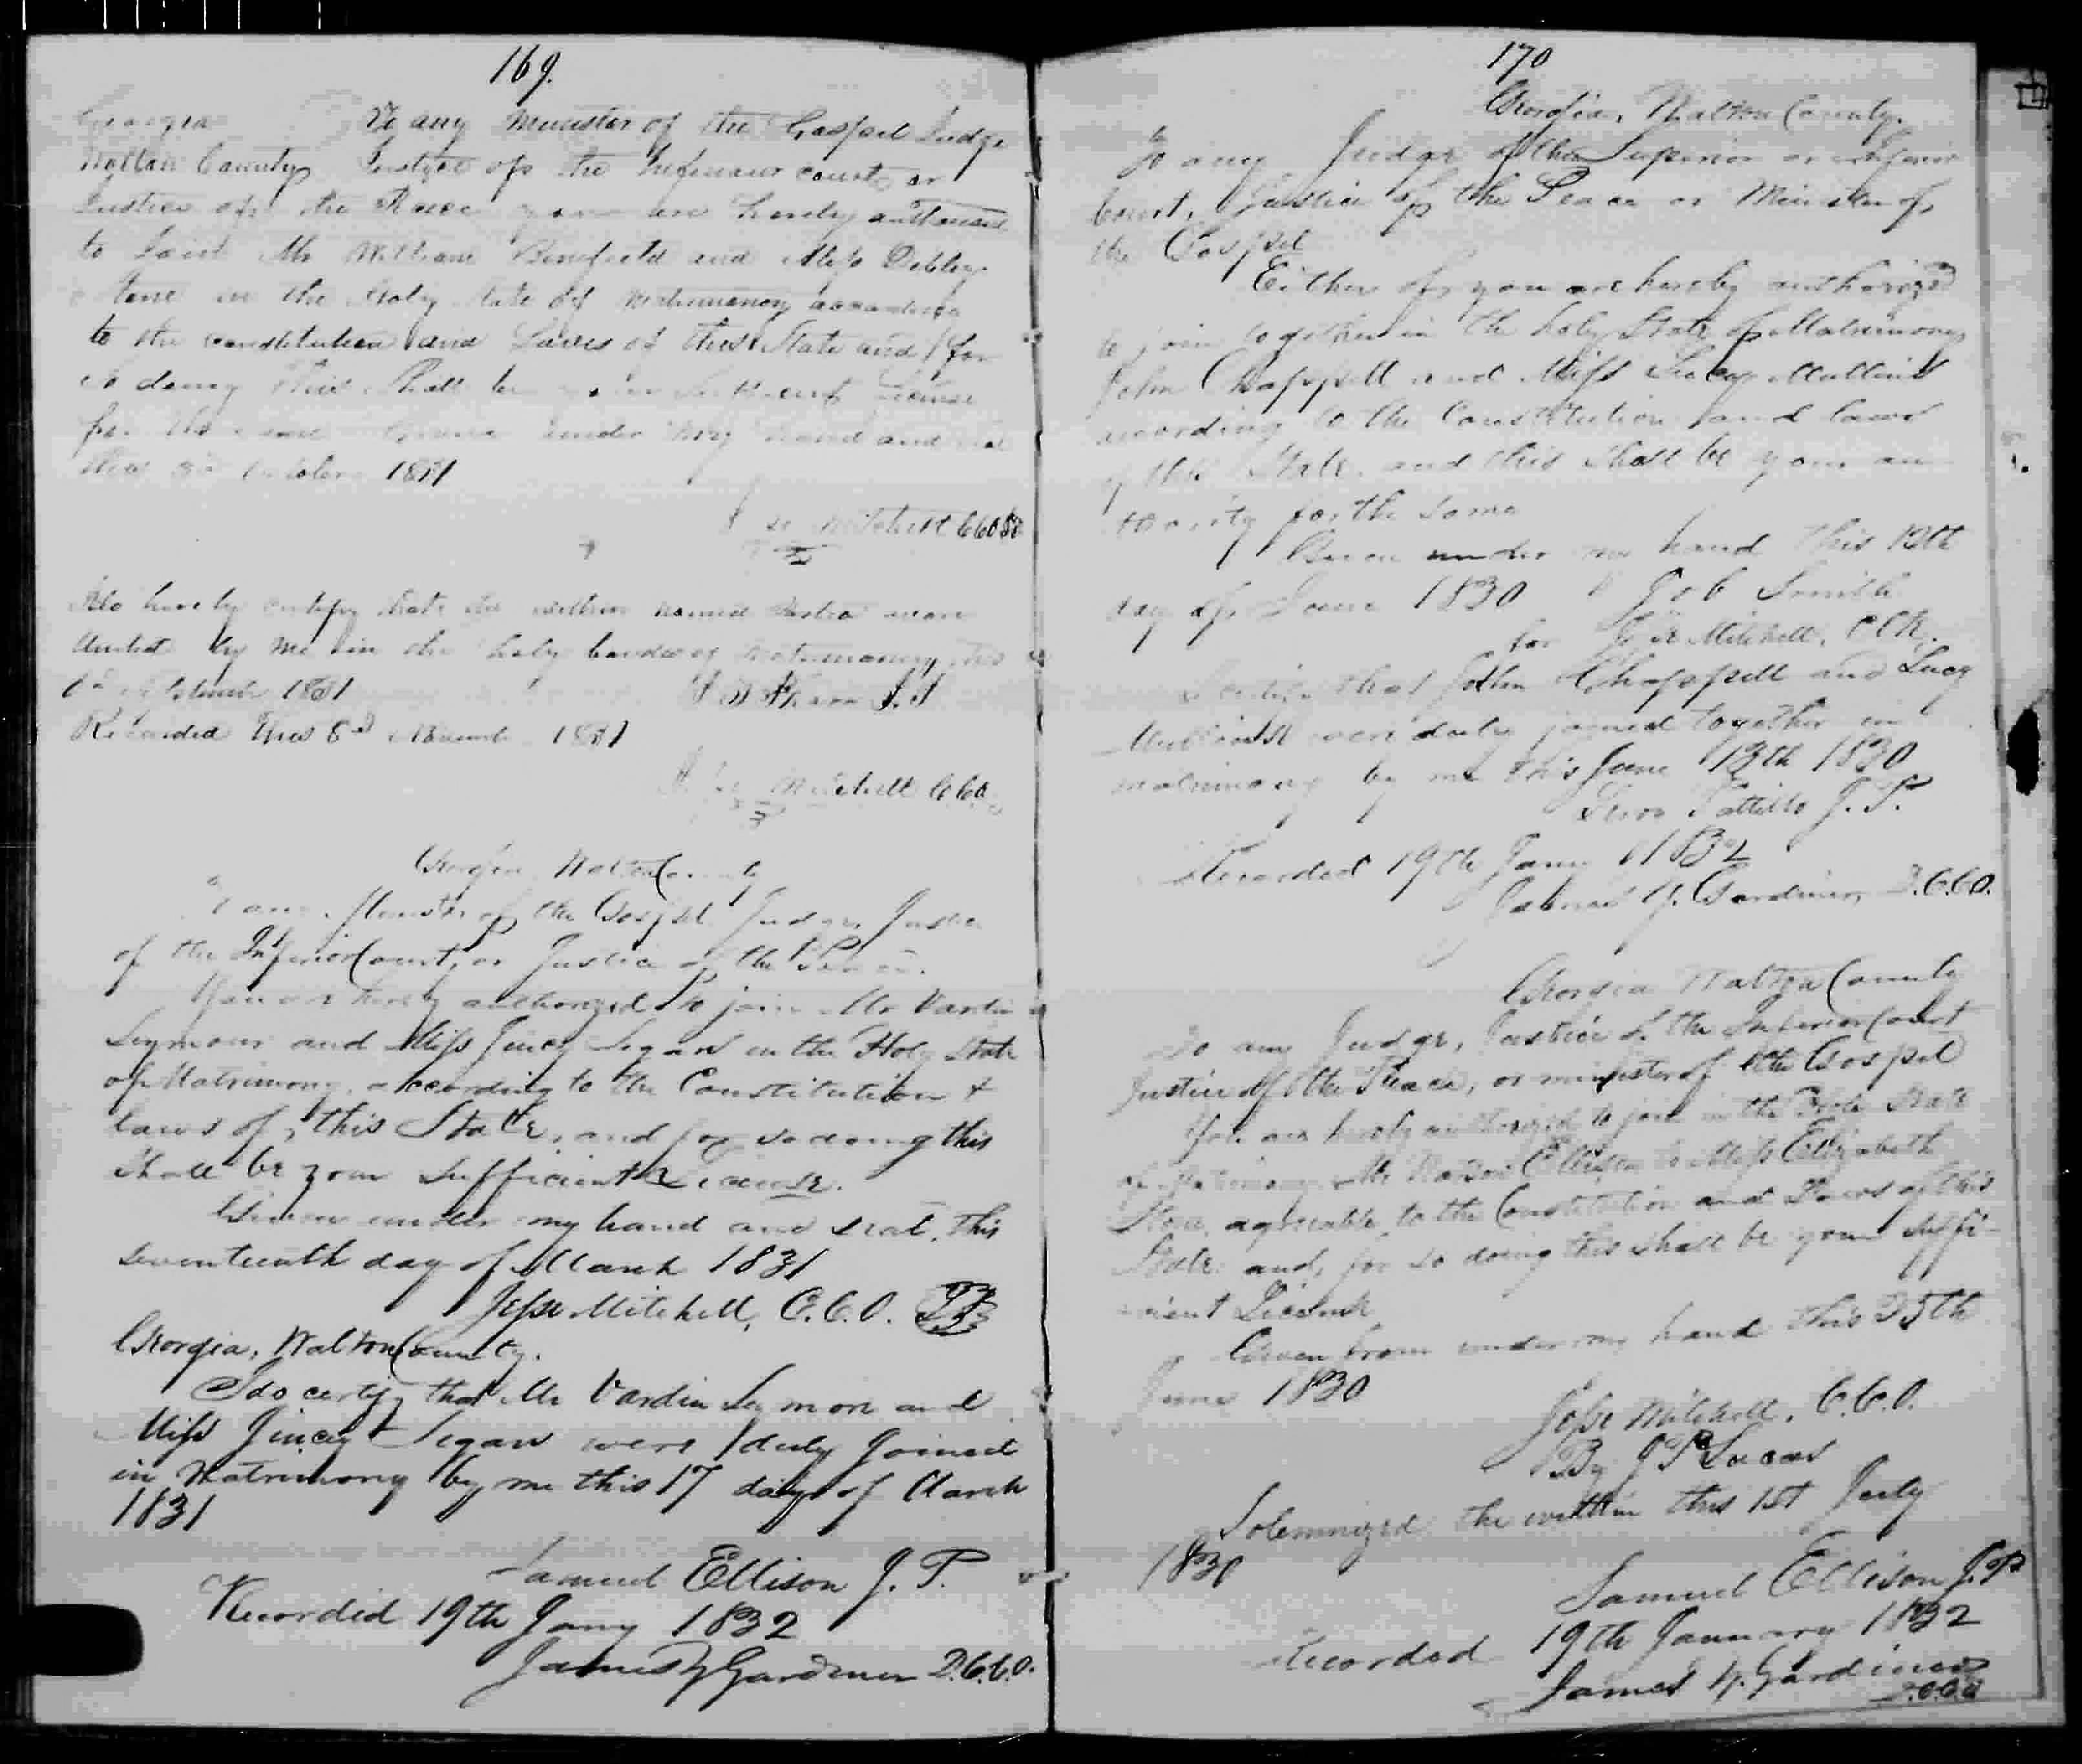 169.
Georgia To any Minister of the Gospel Judge
Walton County Justice of the Inferiour court or
Justice of the Peace you are hereby authorised
to Join Mr William Benefield and Miss
in the Holy State of Matrimony
to the constitution and Laws of this State and for
so doing this Shall be your Sufficient License
for the same Given under my hand and seal
this October 1831
Mitchell CCO
I do hereby certify that the within named were
United by me in the holy bonds of matrimony this
1831
Recorded this 8d November 1831
Mitchell CCO
Georgia Walton County
To any Minister of the Gospel Judge, Justice
of the Inferior Court, or Justice of the Peace.
You are hereby authorized to join Mr Vardin
Seymour and Miss Jincey Segars in the Holy State
of Matrimony, according to the Constitution &
laws of this State, and for so doing this
shall be your Sufficient License.
Given under my hand and seal, this
Seventeenth day of March 1831
Jesse Mitchell, C.C.O.
Georgia, Walton County.
I do certify that Mr Vardin Seymore and
Miss Jincey Segars were duly Joined
in Matrimony by me this 17 day of March
1831
Samuel Ellison J. P.
Recorded 19th Jany 1832
James Gardner D.C.C.O.
170
Georgia, Walton County.
To any Judge of the Superior or Inferior
Court, Justice of the Peace or Minister of
the Gospel
Either of you are hereby authorized
to join together in the holy State of Matrimony
John Chappell and Miss Lucy Mullins
according to the Constitution and laws
of this State, and this shall be your au
thority for the same
Given under my hand this 12th
day of June 1830 Job Smith
for Mitchell, Clk.
I certify that John Chappell and Lucy
Mullins were duly joined together in
matrimony by me this June 13th 1830
Pattillo J. P.
Recorded 19th Jany 1832
James Gardiner, D.C.C.O.
Georgia Walton County
To any Judge, Justice of the Inferior Court
Justice of the Peace, or minister of the Gospel
You are hereby authorized to join in the Holy State
of Matrimony Mr Ellison to Miss Elizabeth
agreeable to the Constitution and Laws of this
State and, for so doing this shall be your suffi-
cient License
Given from under my hand this 25th
June 1830
Jesse Mitchell, C.C.O.
By Lucas
Solemnized the within this 1st July
1830
Samuel Ellison J.P.
Recorded 19th January 1832
James Gardiner
D.C.C.O